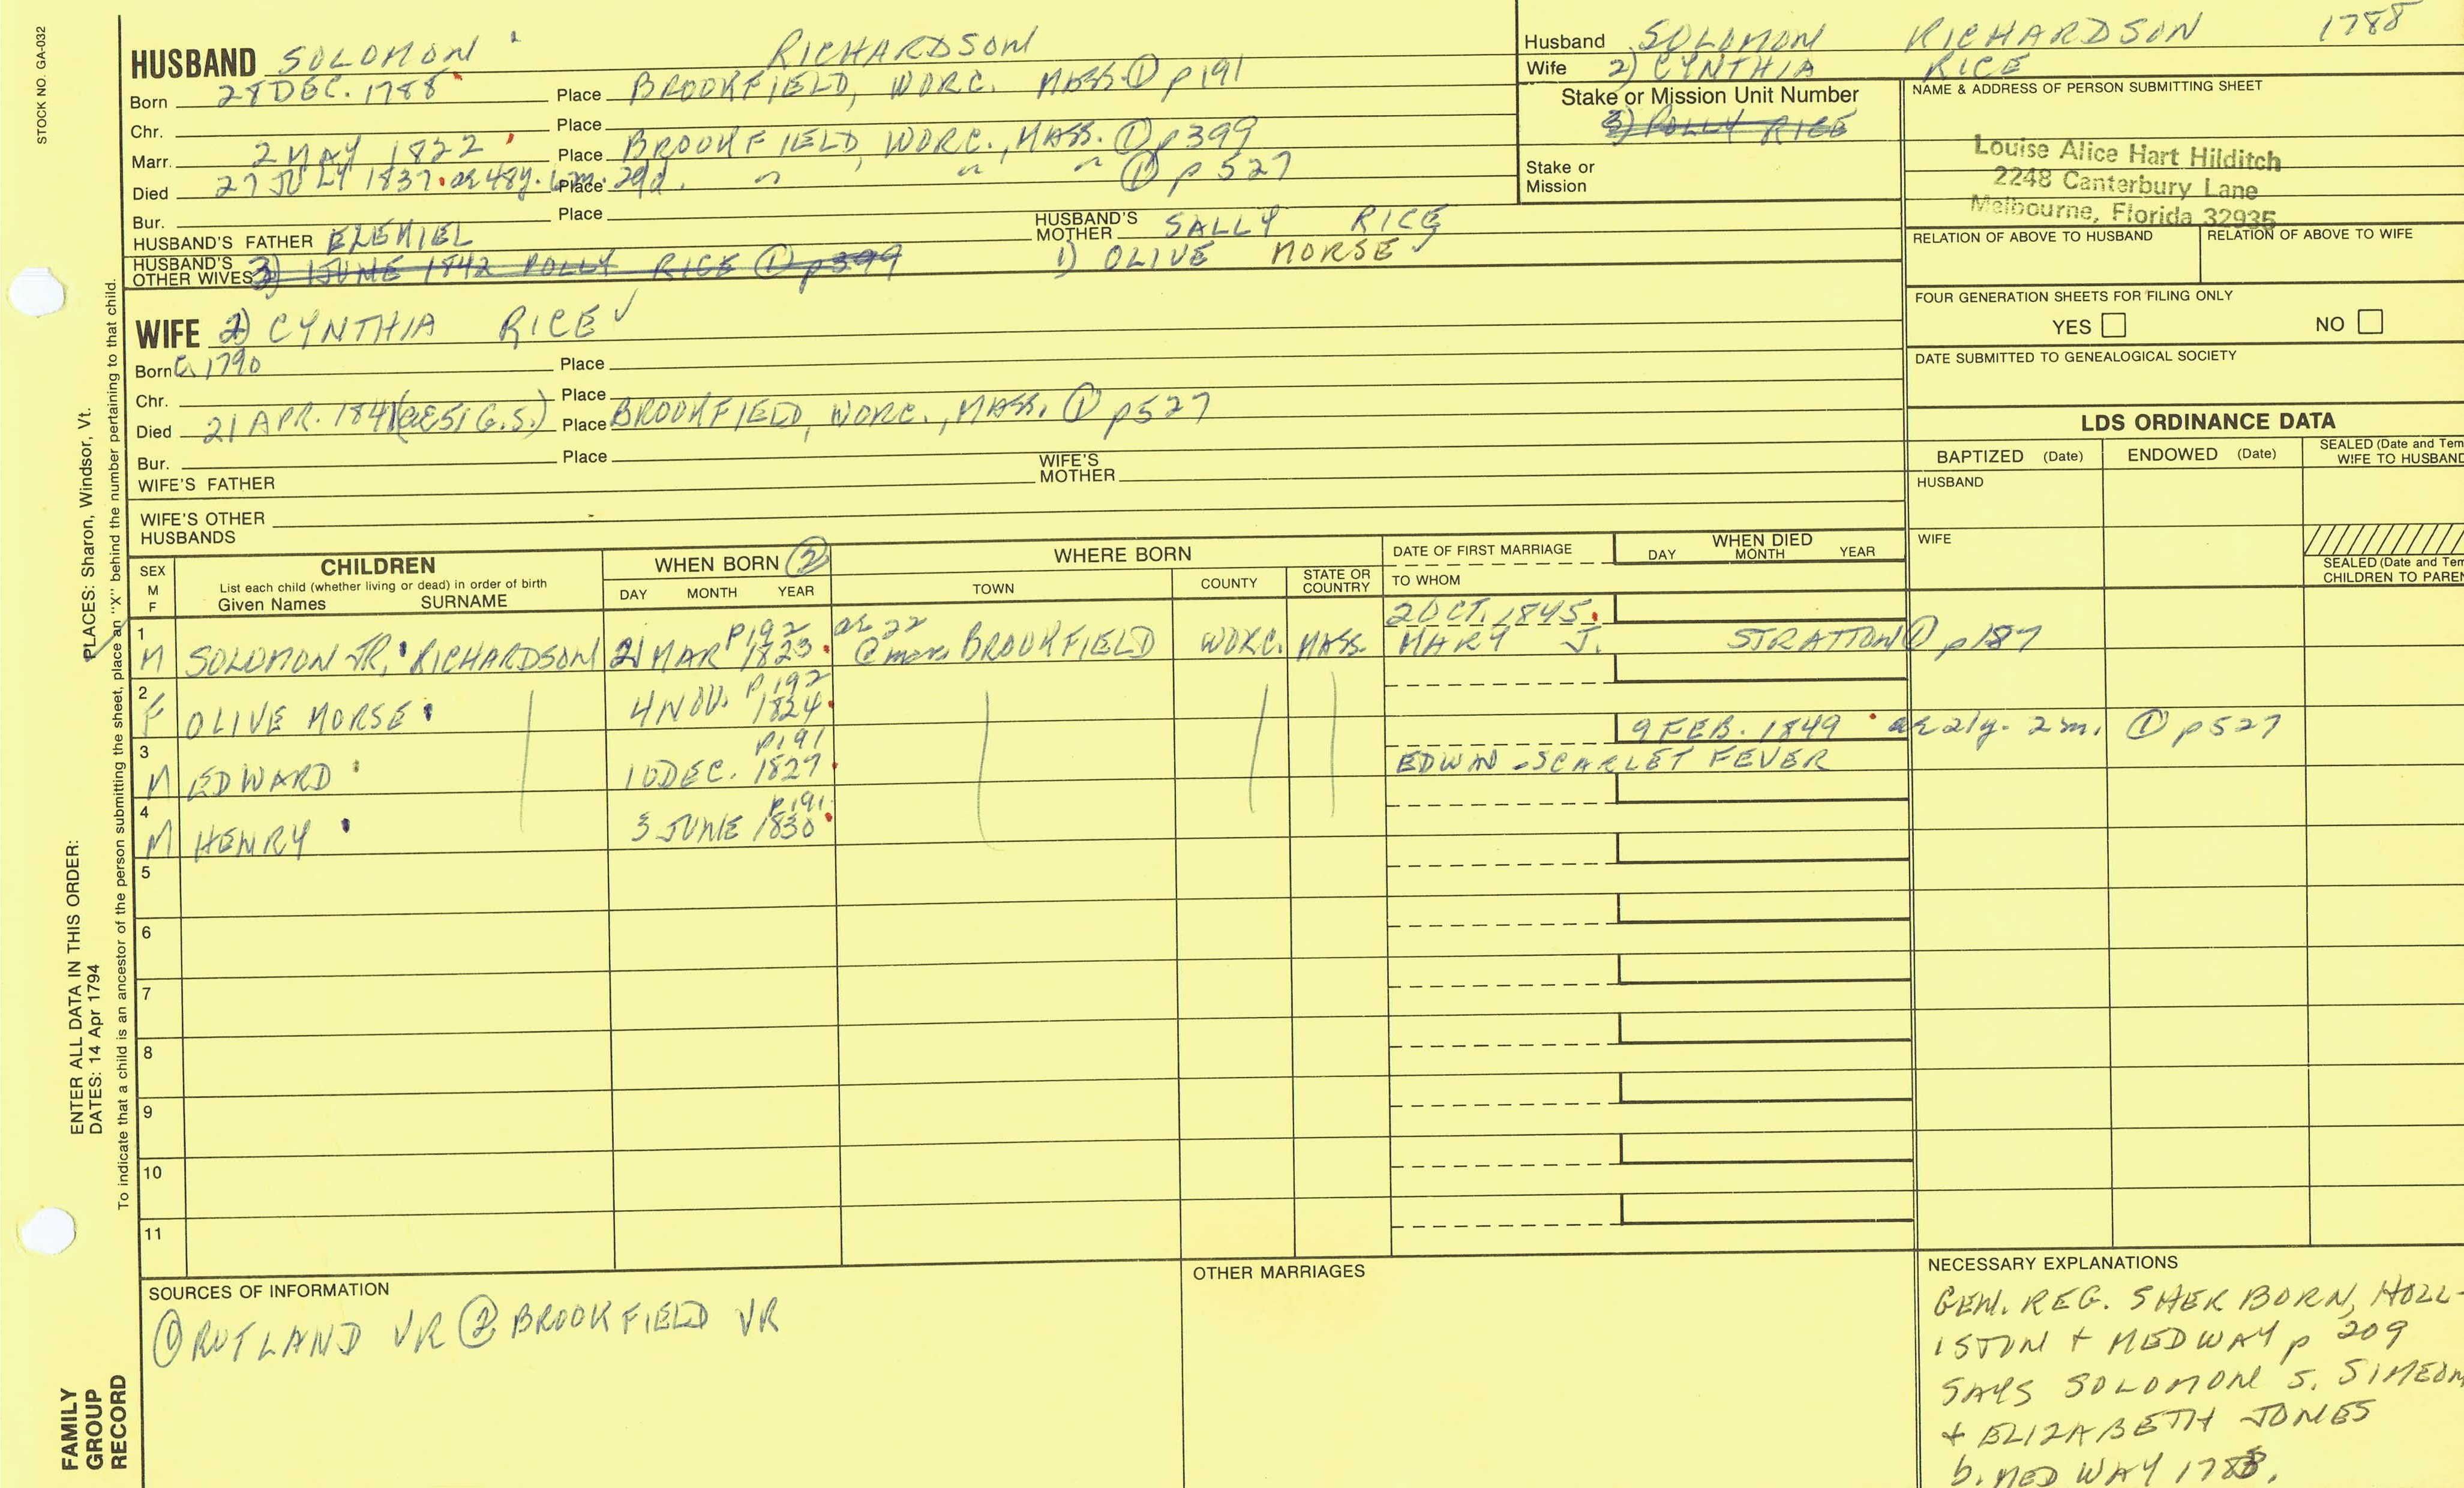 STOCK NO. GA-032
HUSBAND SOLOMON RICHARDSON
Born 28 DEC. 1788 Place BROOKFIELD, WORC. MASS. ① p191
Chr. Place
Marr. 2 MAY 1822 Place BROOKFIELD, WORC., MASS. ① p399
Died 27 JULY 1837. ae 48y. 6m. 29d. Place " " " ① p527
Bur. Place
HUSBAND'S FATHER EZEKIEL HUSBAND'S MOTHER SALLY RICE
HUSBAND'S OTHER WIVES 3) 1 JUNE 1842 POLLY RICE ① p399 1) OLIVE MORSE
Husband SOLOMON RICHARDSON 1788
Wife 2) CYNTHIA RICE
Stake or Mission Unit Number
3) POLLY RICE
Stake or
Mission
NAME & ADDRESS OF PERSON SUBMITTING SHEET
Louise Alice Hart Hilditch
2248 Canterbury Lane
Melbourne, Florida 32935
RELATION OF ABOVE TO HUSBAND RELATION OF ABOVE TO WIFE
FOUR GENERATION SHEETS FOR FILING ONLY
YES NO
DATE SUBMITTED TO GENEALOGICAL SOCIETY
WIFE 2) CYNTHIA RICE ✓
Born C. 1790 Place
Chr. Place
Died 21 APR. 1841 (ae 51 G.S.) Place BROOKFIELD, WORC., MASS. ① p527
Bur. Place
WIFE'S FATHER WIFE'S MOTHER
WIFE'S OTHER
HUSBANDS
LDS ORDINANCE DATA
BAPTIZED (Date) ENDOWED (Date) SEALED (Date and Tem
WIFE TO HUSBAND
HUSBAND
WIFE
SEALED (Date and Tem
CHILDREN TO PAREN
SEX
M
F
CHILDREN
List each child (whether living or dead) in order of birth
Given Names SURNAME
WHEN BORN ②
DAY MONTH YEAR
WHERE BORN
TOWN COUNTY STATE OR COUNTRY
DATE OF FIRST MARRIAGE
TO WHOM
WHEN DIED
DAY MONTH YEAR
1 p192 ae 22 2 OCT. 1845.
M SOLOMON JR. RICHARDSON 21 MAR 1823. @ marr. BROOKFIELD WORC. MASS. MARY J. STRATTON ① p187
2 p192
F OLIVE MORSE 4 NOV. 1824.
3 p191 9 FEB. 1849 ae 21y. 2m. ① p527
M EDWARD 10 DEC. 1827 EDWIN - SCARLET FEVER
4 p191
M HENRY 3 JUNE 1830
5
6
7
8
9
10
11
SOURCES OF INFORMATION
① RUTLAND VR ② BROOKFIELD VR
OTHER MARRIAGES
NECESSARY EXPLANATIONS
GEN. REG. SHERBORN, HOLL-
ISTON + MEDWAY p 209
SAYS SOLOMON S. SIMEON
+ ELIZABETH JONES
b. MEDWAY 1788.
PLACES: Sharon, Windsor, Vt.
ENTER ALL DATA IN THIS ORDER:
DATES: 14 Apr 1794
To indicate that a child is an ancestor of the person submitting the sheet, place an "X" behind the number pertaining to that child.
FAMILY
GROUP
RECORD